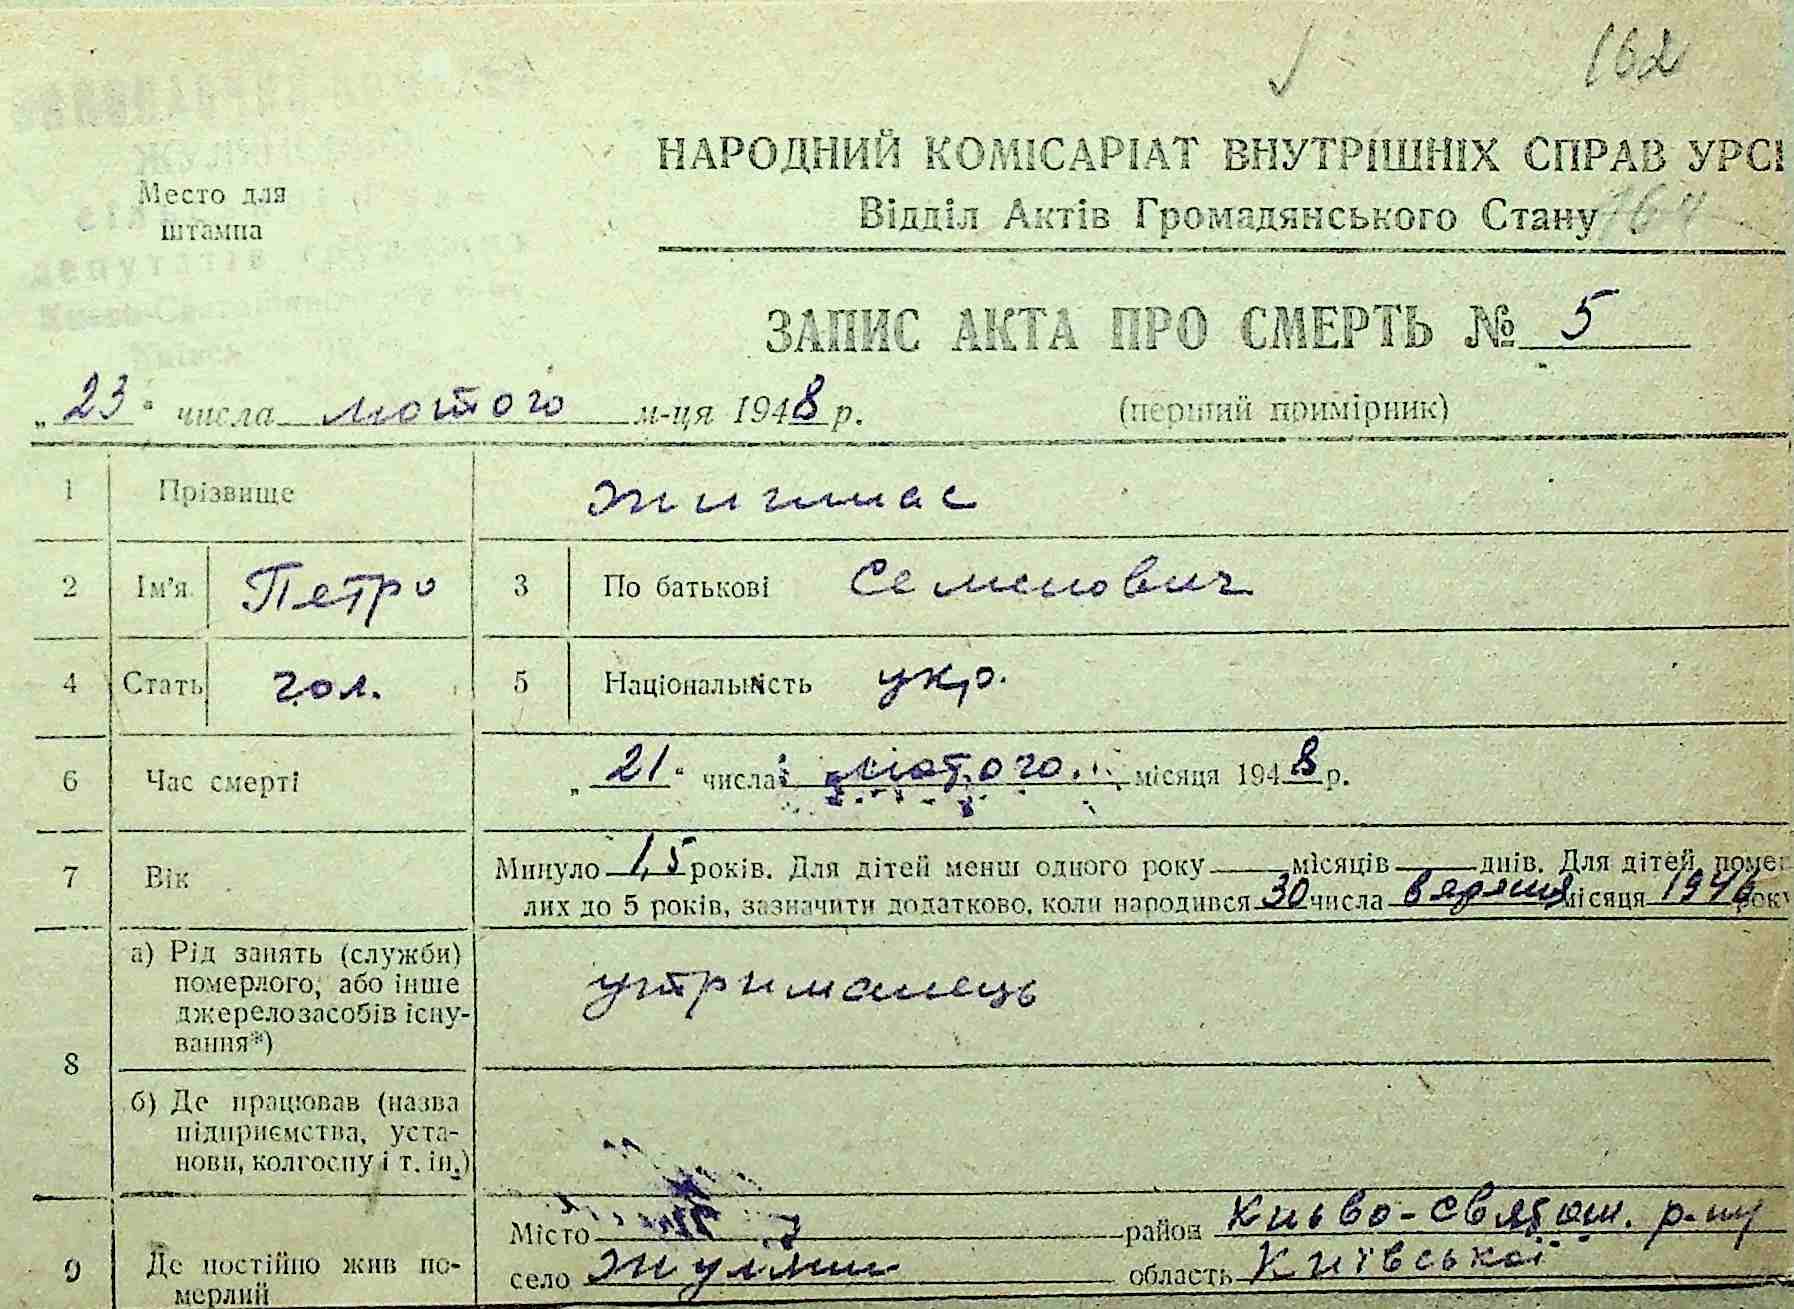 162
НАРОДНИЙ КОМІСАРІАТ ВНУТРІШНІХ СПРАВ УРСР
Відділ Актів Громадянського Стану 164
Место для
штампа
депутатів
ЗАПИС АКТА ПРО СМЕРТЬ № 5
„23" числа лютого м-ця 1948 р. (перший примірник)
1 Прізвище
2 Ім'я Петро 3 По батькові Семенович
4 Стать чол. 5 Національність укр.
6 Час смерті „21" числа лютого місяця 1948 р.
7 Вік Минуло 1,5 років. Для дітей менш одного року місяців днів. Для дітей, помер-
лих до 5 років, зазначити додатково, коли народився 30 числа вересня місяця 1946 року
8 а) Рід занять (служби)
померлого, або інше
джерело засобів існу-
вання*) утриманець
б) Де працював (назва
підприємства, уста-
нови, колгоспу і т. ін.)
9 Де постійно жив по-
мерлий
Місто район Києво-Святош. р-ну
село Жуляни область Київської